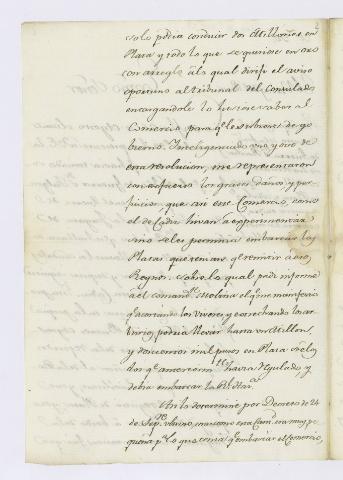 solo podia conducir dos Millones en
Plata y todo lo que se quisiese en oro
con arreglo à la qual dirigi el aviso
oportuno al tribunal del Consulado
encargandole lo hiciese saber al
Comercio para qe le sirviese de go-
bierno. Inteligenciados uno y otro de
esta resolucion, me representaron
con eficacia los graves daños y per-
juicios que asi este Comercio, como
el de Cadiz hivan à experimentar,
sino se les permitia embarcar las
Platas que tenian qe remitir a esos
Reynos. Sobre lo qual pedi informe
al comandte Molina el qe me manifestò
qe acortando los Viveres y estrechando
podria llevar hasta un Millon,
y doscientos mil pesos en Plata sobre los
dos qe anteriormte havia regulado, y
debia embarcar la Rl Hazda
Asi lo determinè por Decreto de 24
de Sepre ultimo, mas como esta Cantd era muy pe-
queña pa lo que tenia qe embiar el Comercio,